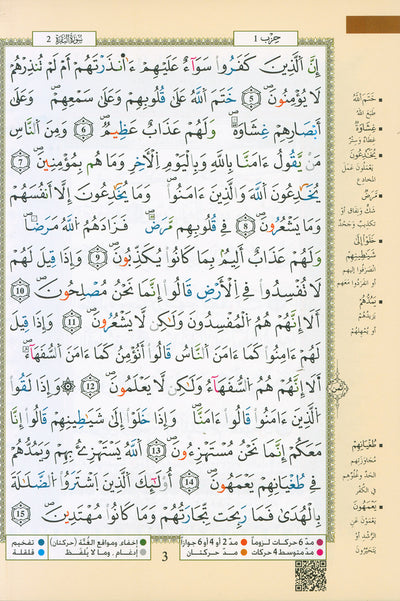 سُورَةُ البَقَرَة 2
حِزْب 1
إِنَّ الَّذِينَ كَفَرُوا سَوَآءٌ عَلَيْهِمْ ءَآنذَرْتَهُمْ أَمْ لَمْ تُنذِرْهُمْ
لَا يُومِنُونَ 5 خَتَمَ اللَّهُ عَلَىٰ قُلُوبِهِمْ وَعَلَىٰ سَمْعِهِمْ وَعَلَىٰ
أَبْصَٰرِهِمْ غِشَٰوَةٌ وَلَهُمْ عَذَابٌ عَظِيمٌ 6 وَمِنَ النَّاسِ
مَنْ يَّقُولُ ءَامَنَّا بِاللَّهِ وَبِالْيَوْمِ الْأَخِرِ وَمَا هُم بِمُومِنِينَ 7
يُخَٰدِعُونَ اللَّهَ وَالَّذِينَ ءَامَنُوا وَمَا يُخَٰدِعُونَ إِلَّا أَنفُسَهُمْ
وَمَا يَشْعُرُونَ 8 فِي قُلُوبِهِم مَّرَضٌ فَزَادَهُمُ اللَّهُ مَرَضًا
وَلَهُمْ عَذَابٌ أَلِيمٌ بِمَا كَانُوا يُكَذِّبُونَ 9 وَإِذَا قِيلَ لَهُمْ
لَا تُفْسِدُوا فِي الْأَرْضِ قَالُوا إِنَّمَا نَحْنُ مُصْلِحُونَ 10
أَلَا إِنَّهُمْ هُمُ الْمُفْسِدُونَ وَلَٰكِن لَّا يَشْعُرُونَ 11 وَإِذَا قِيلَ
لَهُمْ ءَامِنُوا كَمَا ءَامَنَ النَّاسُ قَالُوا أَنُومِنُ كَمَا ءَامَنَ السُّفَهَآءُ
أَلَا إِنَّهُمْ هُمُ السُّفَهَآءُ وَلَٰكِن لَّا يَعْلَمُونَ 12 وَإِذَا لَقُوا
الَّذِينَ ءَامَنُوا قَالُوا ءَامَنَّا وَإِذَا خَلَوْا إِلَىٰ شَيَٰطِينِهِمْ قَالُوا إِنَّا
مَعَكُمْ إِنَّمَا نَحْنُ مُسْتَهْزِءُونَ 13 اللَّهُ يَسْتَهْزِئُ بِهِمْ وَيَمُدُّهُمْ
فِي طُغْيَٰنِهِمْ يَعْمَهُونَ 14 أُوْلَٰٓئِكَ الَّذِينَ اشْتَرَوُا الضَّلَٰلَةَ
بِالْهُدَىٰ فَمَا رَبِحَت تِّجَٰرَتُهُمْ وَمَا كَانُوا مُهْتَدِينَ 15
خَتَمَ اللهُ
طَبَعَ اللهُ
غِشَاوَةٌ
غِطَاءٌ وَسِتْرٌ
يُخَادِعُونَ
يَعْمَلُونَ عَمَلَ
المخادع
مَرَضٌ
شَكٌّ وَنِفَاقٌ أَوْ
تَكْذِيبٌ وَجَحْدٌ
خَلَوْا إِلَىٰ
شَيَاطِينِهِمْ
انْصَرَفُوا إِلَيْهِمْ
أَوِ انْفَرَدُوا مَعَهُمْ
يَمُدُّهُمْ
يَزِيدُهُمْ
أَوْ يُمْهِلُهُمْ
طُغْيَانِهِمْ
مُجَاوَزَتِهِمُ
الحَدَّ وَغُلُوِّهِمْ
فِي الكُفْرِ
يَعْمَهُونَ
يَعْمَوْنَ عَنِ
الرُّشْدِ أَوْ
يَتَحَيَّرُونَ
مدّ 6 حركات لزوماً مدّ 2 أو 4 أو 6 جوازاً إخفاء ومواقع الغُنَّة (حركتان) تفخيم
مدّ متوسط 4 حركات مدّ حركتان إدغام، وما لا يُلفظ قلقلة
3